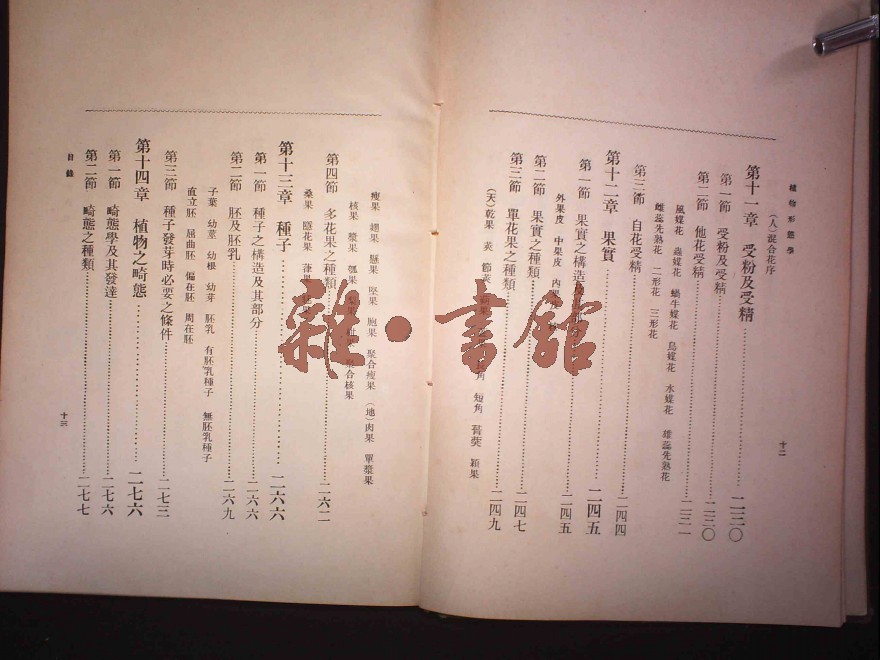 植物形態學
十二
(人)混合花序
第十一章 受粉及受精……二二〇
第一節 受粉及受精……二二〇
第二節 他花受精……二二一
風媒花 蟲媒花 蝸牛媒花 鳥媒花 水媒花 雄蕊先熟花
雌蕊先熟花 二形花 三形花
第三節 自花受精……二四四
第十二章 果實……二四五
第一節 果實之構造及……二四五
外果皮 中果皮 內
第二節 果實之種類……二四七
第三節 單花果之種類……二四九
(天)乾果 莢 節莢 角 短角 蓇葖 穎果
瘦果 翅果 懸果 堅果 胞果 聚合瘦果 (地)肉果 單漿果
核果 漿果 瓠果 聚合核果
第四節 多花果之種類……二六二
桑果 隱花果
第十三章 種子……二六六
第一節 種子之構造及其部分……二六六
第二節 胚及胚乳……二六九
子葉 幼莖 幼根 幼芽 胚乳 有胚乳種子 無胚乳種子
直立胚 屈曲胚 偏在胚 周在胚
第三節 種子發芽時必要之條件……二七三
第十四章 植物之畸態……二七六
第一節 畸態學及其發達……二七六
第二節 畸態之種類……二七七
目錄
十三
雜·書館